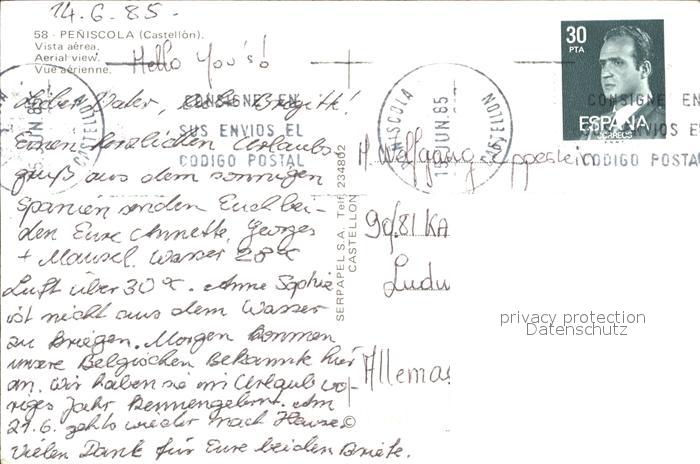 14.6.85.
58 - PEÑISCOLA (Castellón).
Vista aérea.
Aerial view.
Vue aérienne.
Hello You's!
Lieber Vater, liebe Brigitt!
Einen herzlichen Urlaubs-
gruß aus dem sonnigen
Spanien senden Euch bei-
den Eure Annette, Georges
+ Mausel. Wasser 28°C
Luft über 30°C. Anne Sophie
ist nicht aus dem Wasser
zu kriegen. Morgen kommen
unsere Belgischen Bekannte hier
an. Wir haben sie im Urlaub vo-
riges Jahr kennengelernt. Am
21.6. gehts wieder nach Hause
Vielen Dank für Eure beiden Briefe.
CONSIGNE EN
SUS ENVIOS EL
CODIGO POSTAL
JUN 85
CASTELLON
PEÑISCOLA
JUN. 85
CASTELLON
CONSIGNE EN
SUS ENVIOS EL
CODIGO POSTAL
30
PTA
ESPAÑA
CORREOS
SERPAPEL S.A. Telf. 234802
CASTELLON
H. Wolfgang
KA
Ludu
Allema
privacy protection
Datenschutz
©